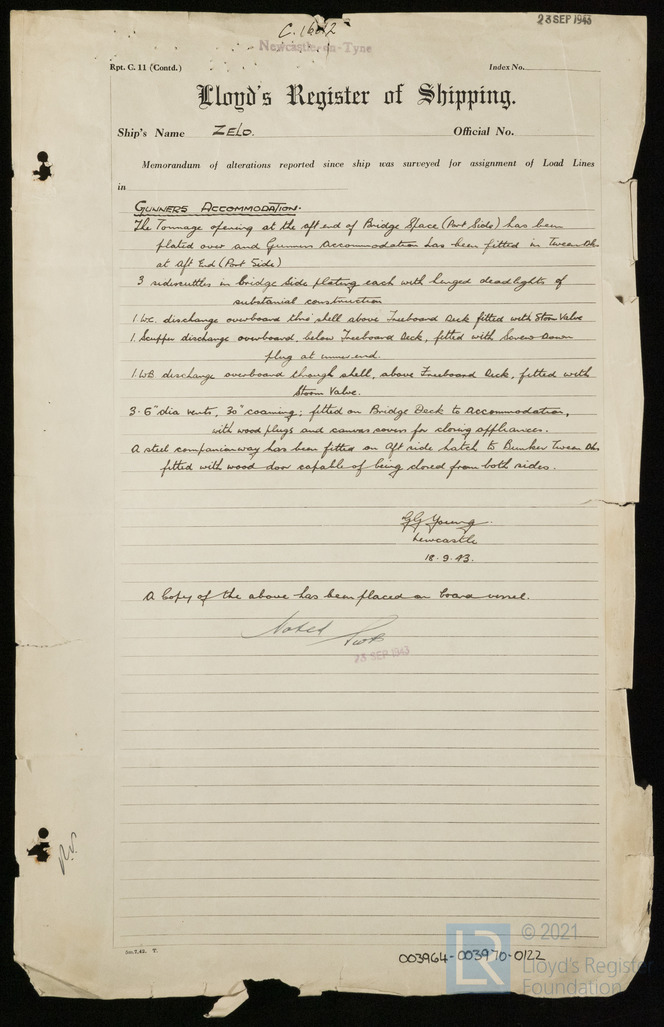 23 SEP 1943
Newcastle-on-Tyne
Rpt. C. 11 (Contd.)
Index No.
Lloyd's Register of Shipping.
Ship's Name ZELO. Official No.
Memorandum of alterations reported since ship was surveyed for assignment of Load Lines
in
GUNNERS ACCOMMODATION.
The Tonnage opening at the aft end of Bridge Space (Port Side) has been
plated over and Gunners Accommodation has been fitted in Tween Dk.
at Aft End (Port Side)
3 sidescuttles in bridge side plating each with hinged deadlights of
substancial construction
1. W.C. discharge overboard thro' shell above Freeboard Deck fitted with Storm Valve
1. Scupper discharge overboard, below Freeboard Deck, fitted with Screw Down
plug at inner end.
1. WB discharge overboard through shell, above Freeboard Deck, fitted with
Storm Valve.
3-6" dia vents, 30" coaming; fitted on Bridge Deck to Accommodation,
with wood plugs and canvas covers for closing appliances.
A steel companionway has been fitted on aft side hatch to Bunker Tween Dks
fitted with wood door capable of being closed from both sides.
GG Young.
Newcastle
18.9.43.
A Copy of the above has been placed on board vessel.
Noted
23 SEP 1943
5m.7.42. T.
003964-003970-0122
LR © 2021
Lloyd's Register
Foundation